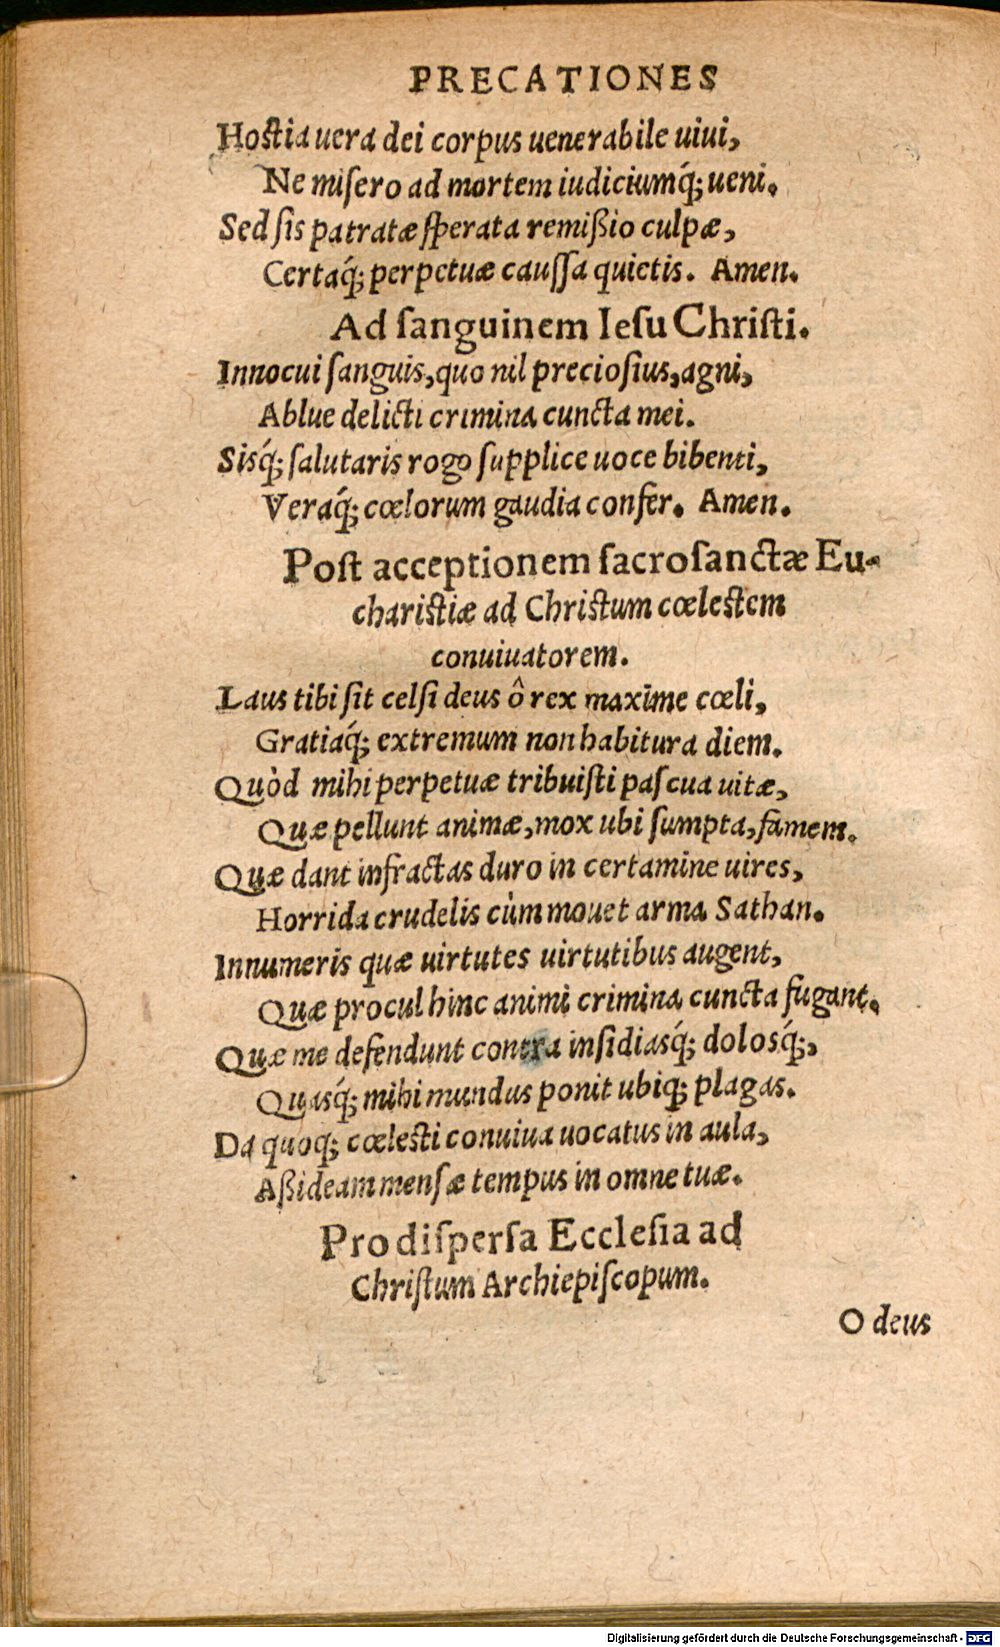 PRECATIONES
Hoſtia uera dei corpus uenerabile uiui,
Ne miſero ad mortem iudiciumq́; ueni.
Sed ſis patratæ ſperata remißio culpæ,
Certaq́; perpetuæ cauſſa quietis. Amen.
Ad ſanguinem Ieſu Chriſti.
Innocui ſanguis, quo nil precioſius, agni,
Ablue delicti crimina cuncta mei.
Sisq́; ſalutaris rogo ſupplice uoce bibenti,
Veraq́; cœlorum gaudia confer. Amen.
Poſt acceptionem ſacroſanctæ Eu-
chariſtiæ ad Chriſtum cœleſtem
conuiuatorem.
Laus tibi ſit celſi deus ô rex maxime cœli,
Gratiaq́; extremum non habitura diem.
Quòd mihi perpetuæ tribuiſti paſcua uitæ,
Quæ pellunt animæ, mox ubi ſumpta, famem.
Quæ dant infractas duro in certamine uires,
Horrida crudelis cùm mouet arma Sathan.
Innumeris quæ uirtutes uirtutibus augent,
Quæ procul hinc animi crimina cuncta fugant.
Quæ me defendunt contra inſidiasq́; dolosq́;,
Quasq́; mihi mundus ponit ubiq; plagas.
Da quoq; cœleſti conuiua uocatus in aula,
Aßideam menſæ tempus in omne tuæ.
Pro diſperſa Eccleſia ad
Chriſtum Archiepiſcopum.
O deus
Digitalisierung gefördert durch die Deutsche Forschungsgemeinschaft - DFG